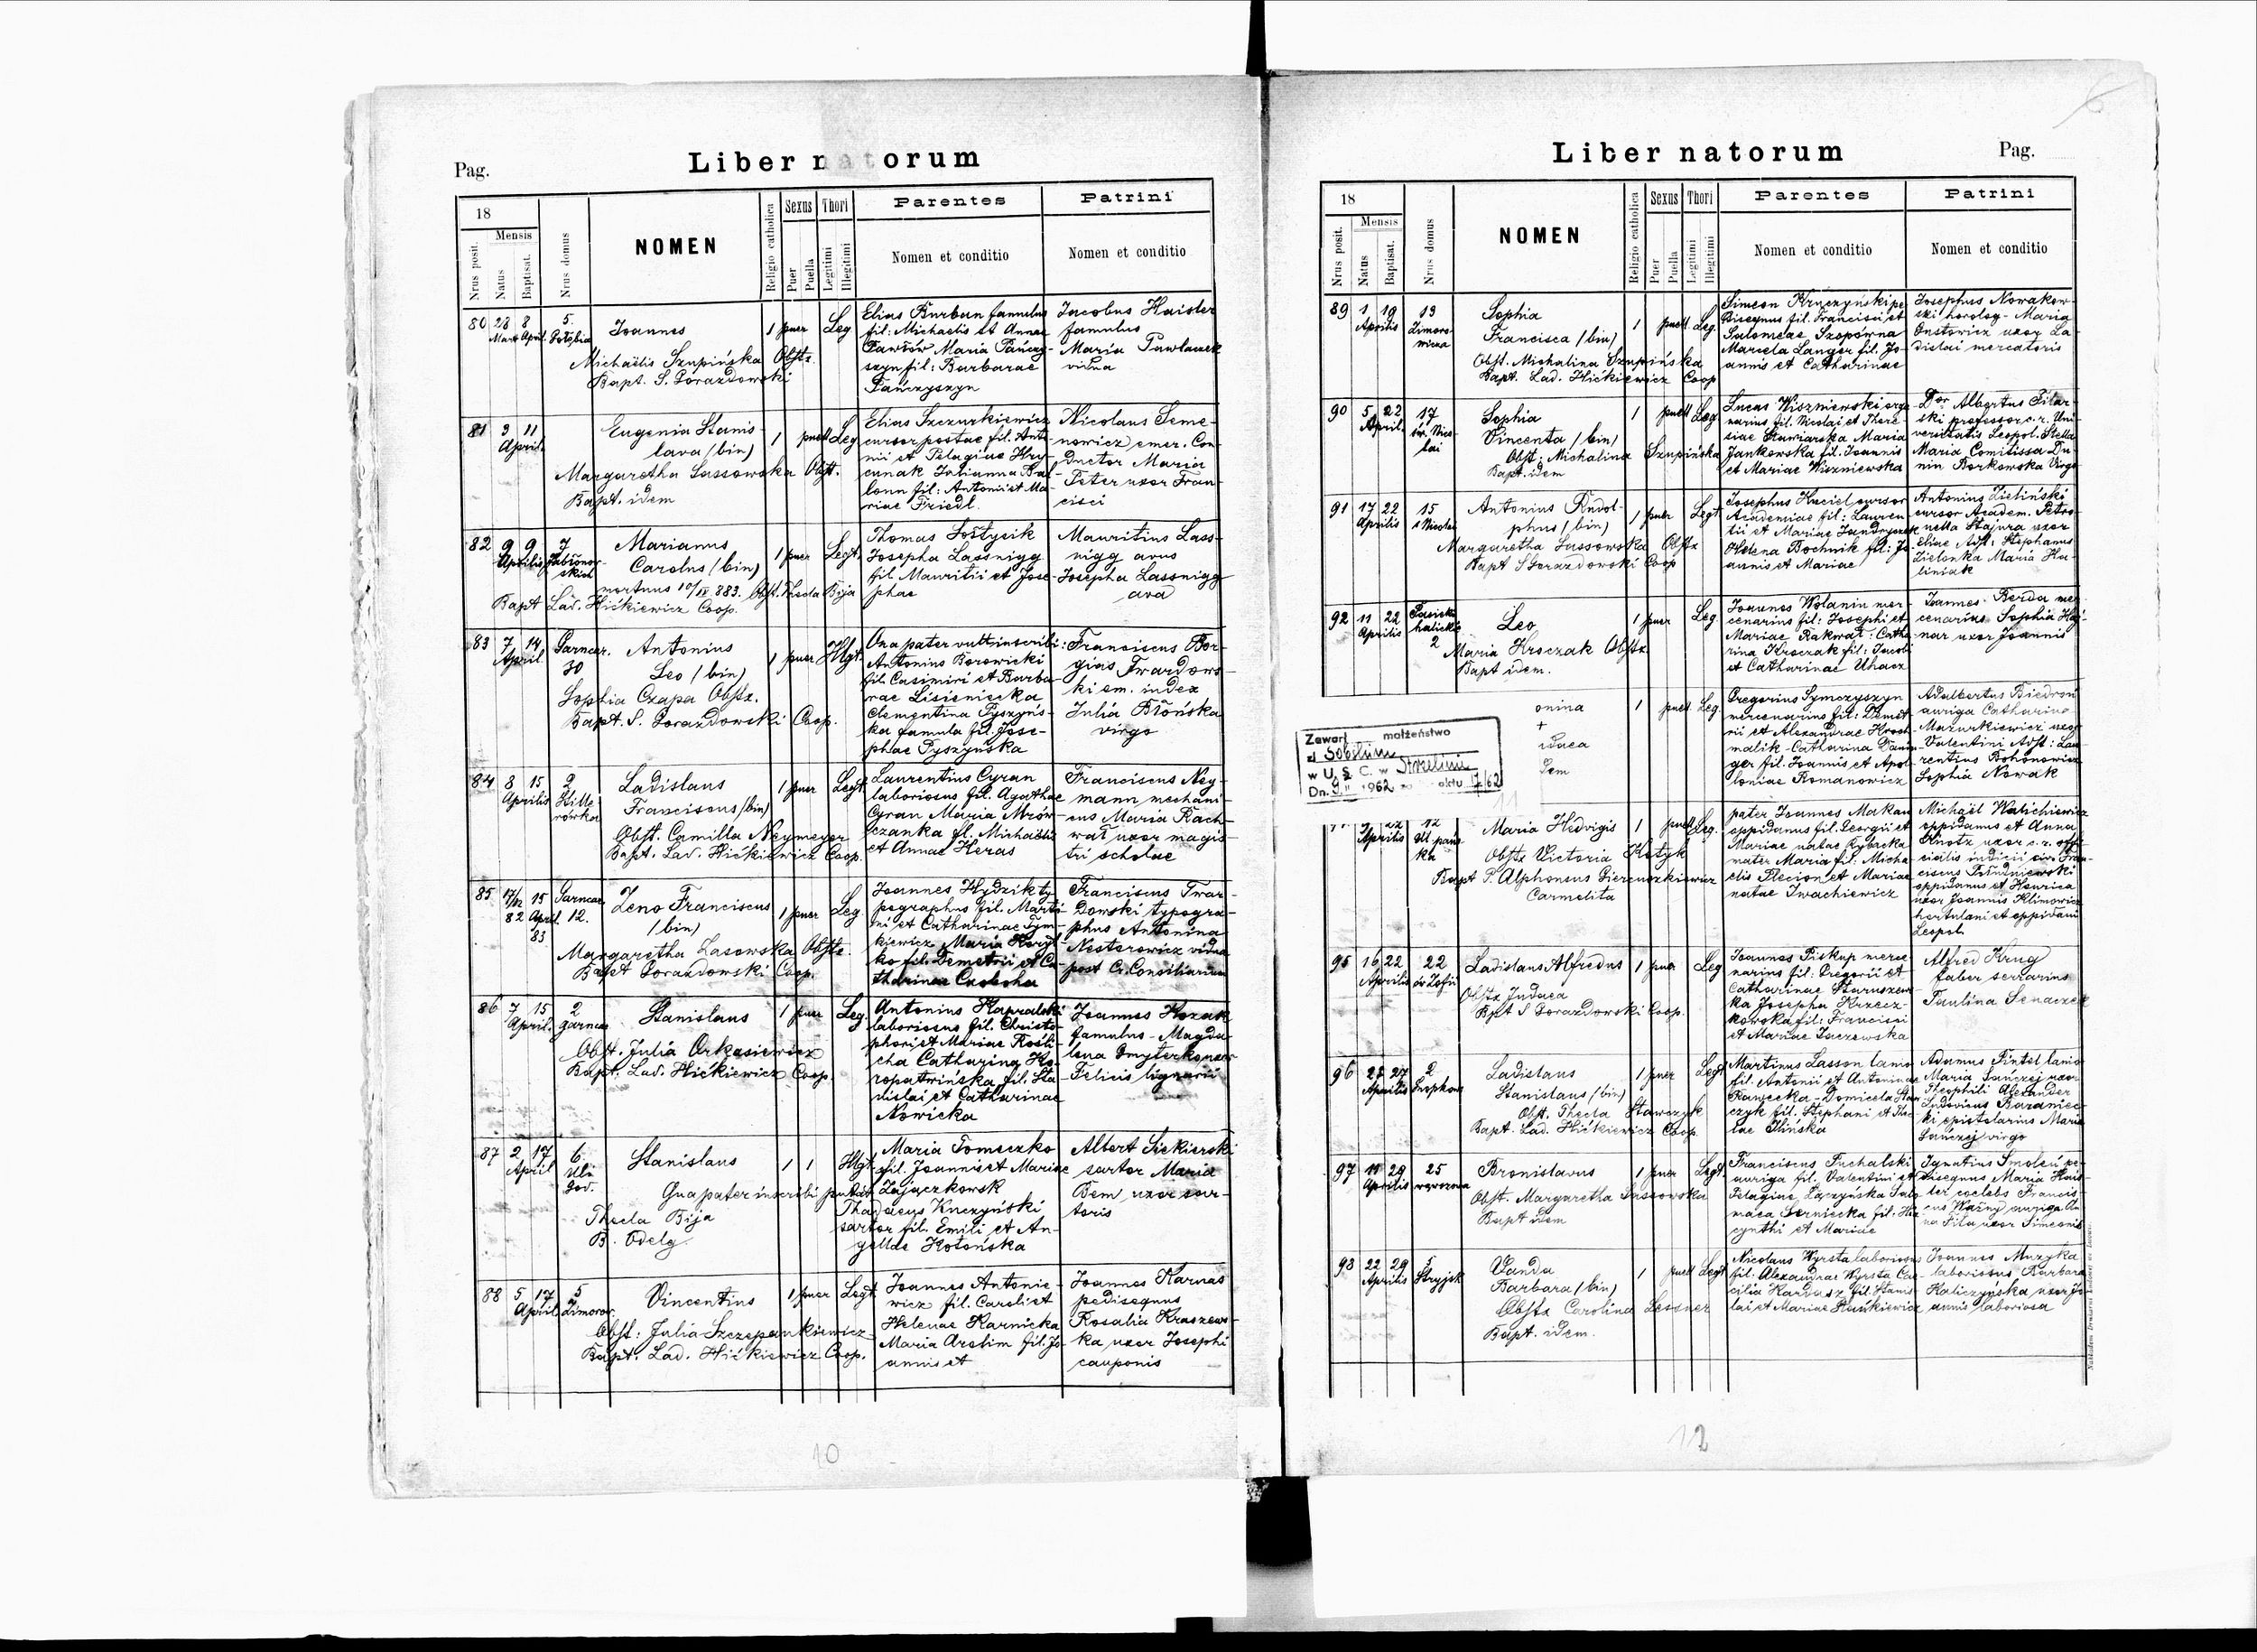 Pag.
Liber natorum
18
Mensis
Nrus posit.
Natus
Baptisat.
Nrus domus
NOMEN
Religio catholica
Sexus
Puer
Puella
Thori
Legitimi
Illegitimi
Parentes
Nomen et conditio
Patrini
Nomen et conditio
80 28 8 5.
Mart April
Joannes
1 puer Leg
Michaëlis Szupińska Obstx.
Bapt. S. Gorazdowski
Elias Burban famulus
fil: Michaelis et Annae
Pawłów Maria Pańczy-
szyn fil: Barbarae
Pańczyszyn
Jacobus Haister
famulus
Maria Pawlaczek
vidua
81 3 11
April.
Eugenia Stanis-
lava (bin)
1 puell Leg
Margaretha Sassowska Obst.
Bapt. idem
Elias Szczurkiewicz
cursor postae fil. Anto-
nii et Pelagiae Hry-
cunak Julianna Bal-
lonn fil: Antonii et Ma-
riae Friedl.
Nicolaus Seme-
nowicz emer. Con-
ductor Maria
Peter uxor Fran-
cisci
82 9 9 7
Aprilis Jabłonow-
skich
Marianus
Carolus (bin)
1 puer Legt.
mortuus 10/IV 883. Obst. Thecla Bija
Bapt Lad. Hićkiewicz Coop.
Thomas Sołtysik
Josepha Lassnigg
fil Mauritii et Jose-
phae
Mauritius Lass-
nigg avus
Josepha Lassnigg
ava
83 7 14 Garncar.
April 30
Antonius
Leo (bin)
1 puer Illgt.
Sophia Czapa Obstx.
Bapt. S. Gorazdowski Coop.
Qua pater vult inscribi:
Antonius Borowicki
fil Casimiri et Barba-
rae Lisieniecka
Clementina Pyszyńs-
ka famula fil. Jose-
phae Pyszyńska
Franciscus Bor-
gias Twardows-
ki em. index
Julia Błońska
virgo
84 8 15 2
Aprilis
Ladislaus
Franciscus (bin)
1 puer Legt.
Obst. Camilla Neymeyer
Bapt. Lad. Hićkiewicz Coop.
Laurentius Cyran
laboriosus fil. Agathae
Cyran Maria Mrów-
czanka fil. Michaëlis
et Annae Heras
Franciscus Ney-
mann mechani-
cus Maria Rach-
wał uxor magis-
tri scholae
85 17/12 15 Garncar
82 April. 12.
83
Zeno Franciscus
(bin)
1 puer Leg.
Margaretha Lasowska Obstx.
Bapt Gorazdowski Coop.
Joannes Hydzik ty-
pographus fil. Marti-
ni et Catharinae Tym-
kiewicz Maria
fil. Demetrii et Ca-
tharinae
Franciscus Twar-
domski typogra-
phus Antonina
Nestorowicz vidua
post C. Consiliarium
86 7 15 2
April. garncar
Stanislaus
1 puer Leg.
Obst. Julia Arkasiewicz
Bapt. Lad. Hićkiewicz Coop.
Antonius Kapralski
laboriosus fil. Christo-
phori et Mariae Rośli-
cha Catharina Ko-
ropatwińska fil. Sta-
dislai et Catharinae
Nowicka
Joannes Kozak
famulus - Magda-
lena Gmyterko uxor
Felicis lignarii
87 2 17 6.
April
Stanislaus
1 1 Illgt
Qua pater inscribi putat
Thecla Bija
B. Odelg.
Maria Tomeczko
fil. Joannis et Mariae
Zajączkowsk
Thadaeus Kuczyński
sartor fil. Emili et An-
gellae Kotońska
Albert Siekierski
sartor Maria
Bem uxor sar-
toris
88 5 17 5
April. Zimorow.
Vincentius
1 puer Legt.
Obst: Julia Szczepankiewicz
Bapt. Lad. Hićkiewicz Coop.
Joannes Antonie-
wicz fil. Caroli et
Helenae Karnicka
Maria Arslim fil. Jo-
annis et
Joannes Karnas
pedisequus
Rosalia Kraszews-
ka uxor Josephi
cauponis
10
Liber natorum
Pag.
6
18
Mensis
Nrus posit.
Natus
Baptisat.
Nrus domus
NOMEN
Religio catholica
Sexus
Puer
Puella
Thori
Legitimi
Illegitimi
Parentes
Nomen et conditio
Patrini
Nomen et conditio
89 1 19 19
Aprilis Zimoro-
wicza
Sophia
Francisca (bin)
1 puell. Leg.
Obst. Michalina Szupińska
Bapt. Lad. Hićkiewicz Coop
Simeon Kruczyński pe-
disequus fil. Francisci et
Salomeae Szopórna
Marcela Langer fil. Jo-
annis et Catharinae
Josephus Nowakow-
ski horolog- Maria
Onstowicz uxor La-
dislai mercatoris
90 5 22 17
April. św. Mico-
lai
Sophia
Vincenta (bin)
1 puell Leg.
Obst: Michalina Szupińska
Bapt. idem
Lucas Wiszniewski
fil. Nicolai et There-
siae Maria
Jankowska fil. Joannis
et Mariae Wiszniewska
Dor. Albertus Pilar-
ski professor c. r. Uni-
versitatis Leopol. Stella
Maria Comitissa Du-
nin Borkowska Virgo
91 17 22 15
Aprilis
Antonius Rudol-
phus (bin)
1 puer Legt
Margaretha Sassowska Obstx
Bapt S Gorazdowski Coop
Josephus Huciel cursor
Academiae fil: Lauren-
tii et Mariae
Helena Bochnik fil: Jo-
annis et Mariae
Antonius Zieliński
cursor Academ. Petro-
nella Stajura uxor
Eliae Adst: Stephanus
Zielonka Maria Ha-
liniak
92 11 22
Aprilis halicka
2
Leo
1 puer Leg
Maria Kroczak Obstx
Bapt idem.
Joannes Wolanin mer-
cenarius fil: Josephi et
Mariae Rakwał: Catha-
rina Kroczak fil: Jacobi
et Catharinae Uhacz
Joannes Berda mer-
cenarius Sophia
uxor Joannis
onina
+
idaea
dem
1 puell Leg.
Gregorius Symczyszyn
mercenarius fil: Demet-
rii et Alexandrae
malik - Catharina Danin-
ger fil. Joannis et Apol-
loniae Romanowicz
Adalbertus Biedroń
auriga Catharina
Mazurkiewicz uxor
Valentini Adst: Lau-
rentius Bohonowicz
Sophia Nowak
Zawarł małżeństwo
w U. S. C. w Strzelinie
Dn. 9. II 1962 aktu 17/62
22 12
Aprilis
Maria Hedvigis
1 puell Leg.
Obstx Victoria Kotyk
Bapt P. Alphonsus
Carmelita
pater Joannes Makan
oppidanus fil. Georgii et
Mariae natae Rybacka
mater Maria fil: Micha-
elis Plecion et Mariae
natae Iwachiewicz
Michaël Walichiewicz
oppidanus et Anna
Knotz uxor c. r. offi-
cialis indicii civ. Fran-
ciscus
oppidanus et Henrica
uxor Joannis Klimowicz
hortulani et oppidani
Leopol.
95 16 22 22
Aprilis św Zofii
Ladislaus Alfredus
1 puer Leg
Obstx Judaea
Bapt S Gorazdowski Coop.
Joannes Piskup merce-
narius fil: Gregorii et
Catharinae
Josepha Krzecz-
kowska fil: Francisci
et Mariae
Alfred Krug
faber serrarius
Paulina Senaczek
96 27 27 2
Aprilis Snopkow
Ladislaus
Stanislaus (bin)
1 puer Legt
Obst. Thecla Stawczyk
Bapt. Lad. Hićkiewicz Coop.
Martinus Lasson lanio
fil. Antonii et Antoninae
Rawecka - Domicela
czyk fil. Stephani et The-
lae Ilińska
Adamus Pintel lanio
Maria Sańczej uxor
Theophili Alexander
Ludovicus Baraniec-
ki epistolarius Maria
Sańczej virgo
97 11 29 25
Aprilis
Bronislavus
1 puer Legt.
Obst. Margaretha Sassowska
Bapt idem
Franciscus Puchalski
auriga fil. Valentini et
Pelagiae Łączyńska Salo-
maea Serniecka fil. Hia-
cynthi et Mariae
Ignatius Smoleń pe-
disequus Maria
ter coelebs Francis-
cus Ważny auriga An-
na Pila uxor Simeonis
98 22 29 5
Aprilis Stryjsk
Vanda
Barbara (bin)
1 puell Legt
Obstx Carolina Lessner
Bapt. idem.
Nicolaus Wyrsta laboriosus
fil. Alexandrae Wyrsta Cae-
cilia Karvasz fil. Stanis-
lai et Mariae Rańkiewicz
Joannes Muzyka
laboriosus Barbara
Haliczyńska uxor Jo-
annis laboriosa
12